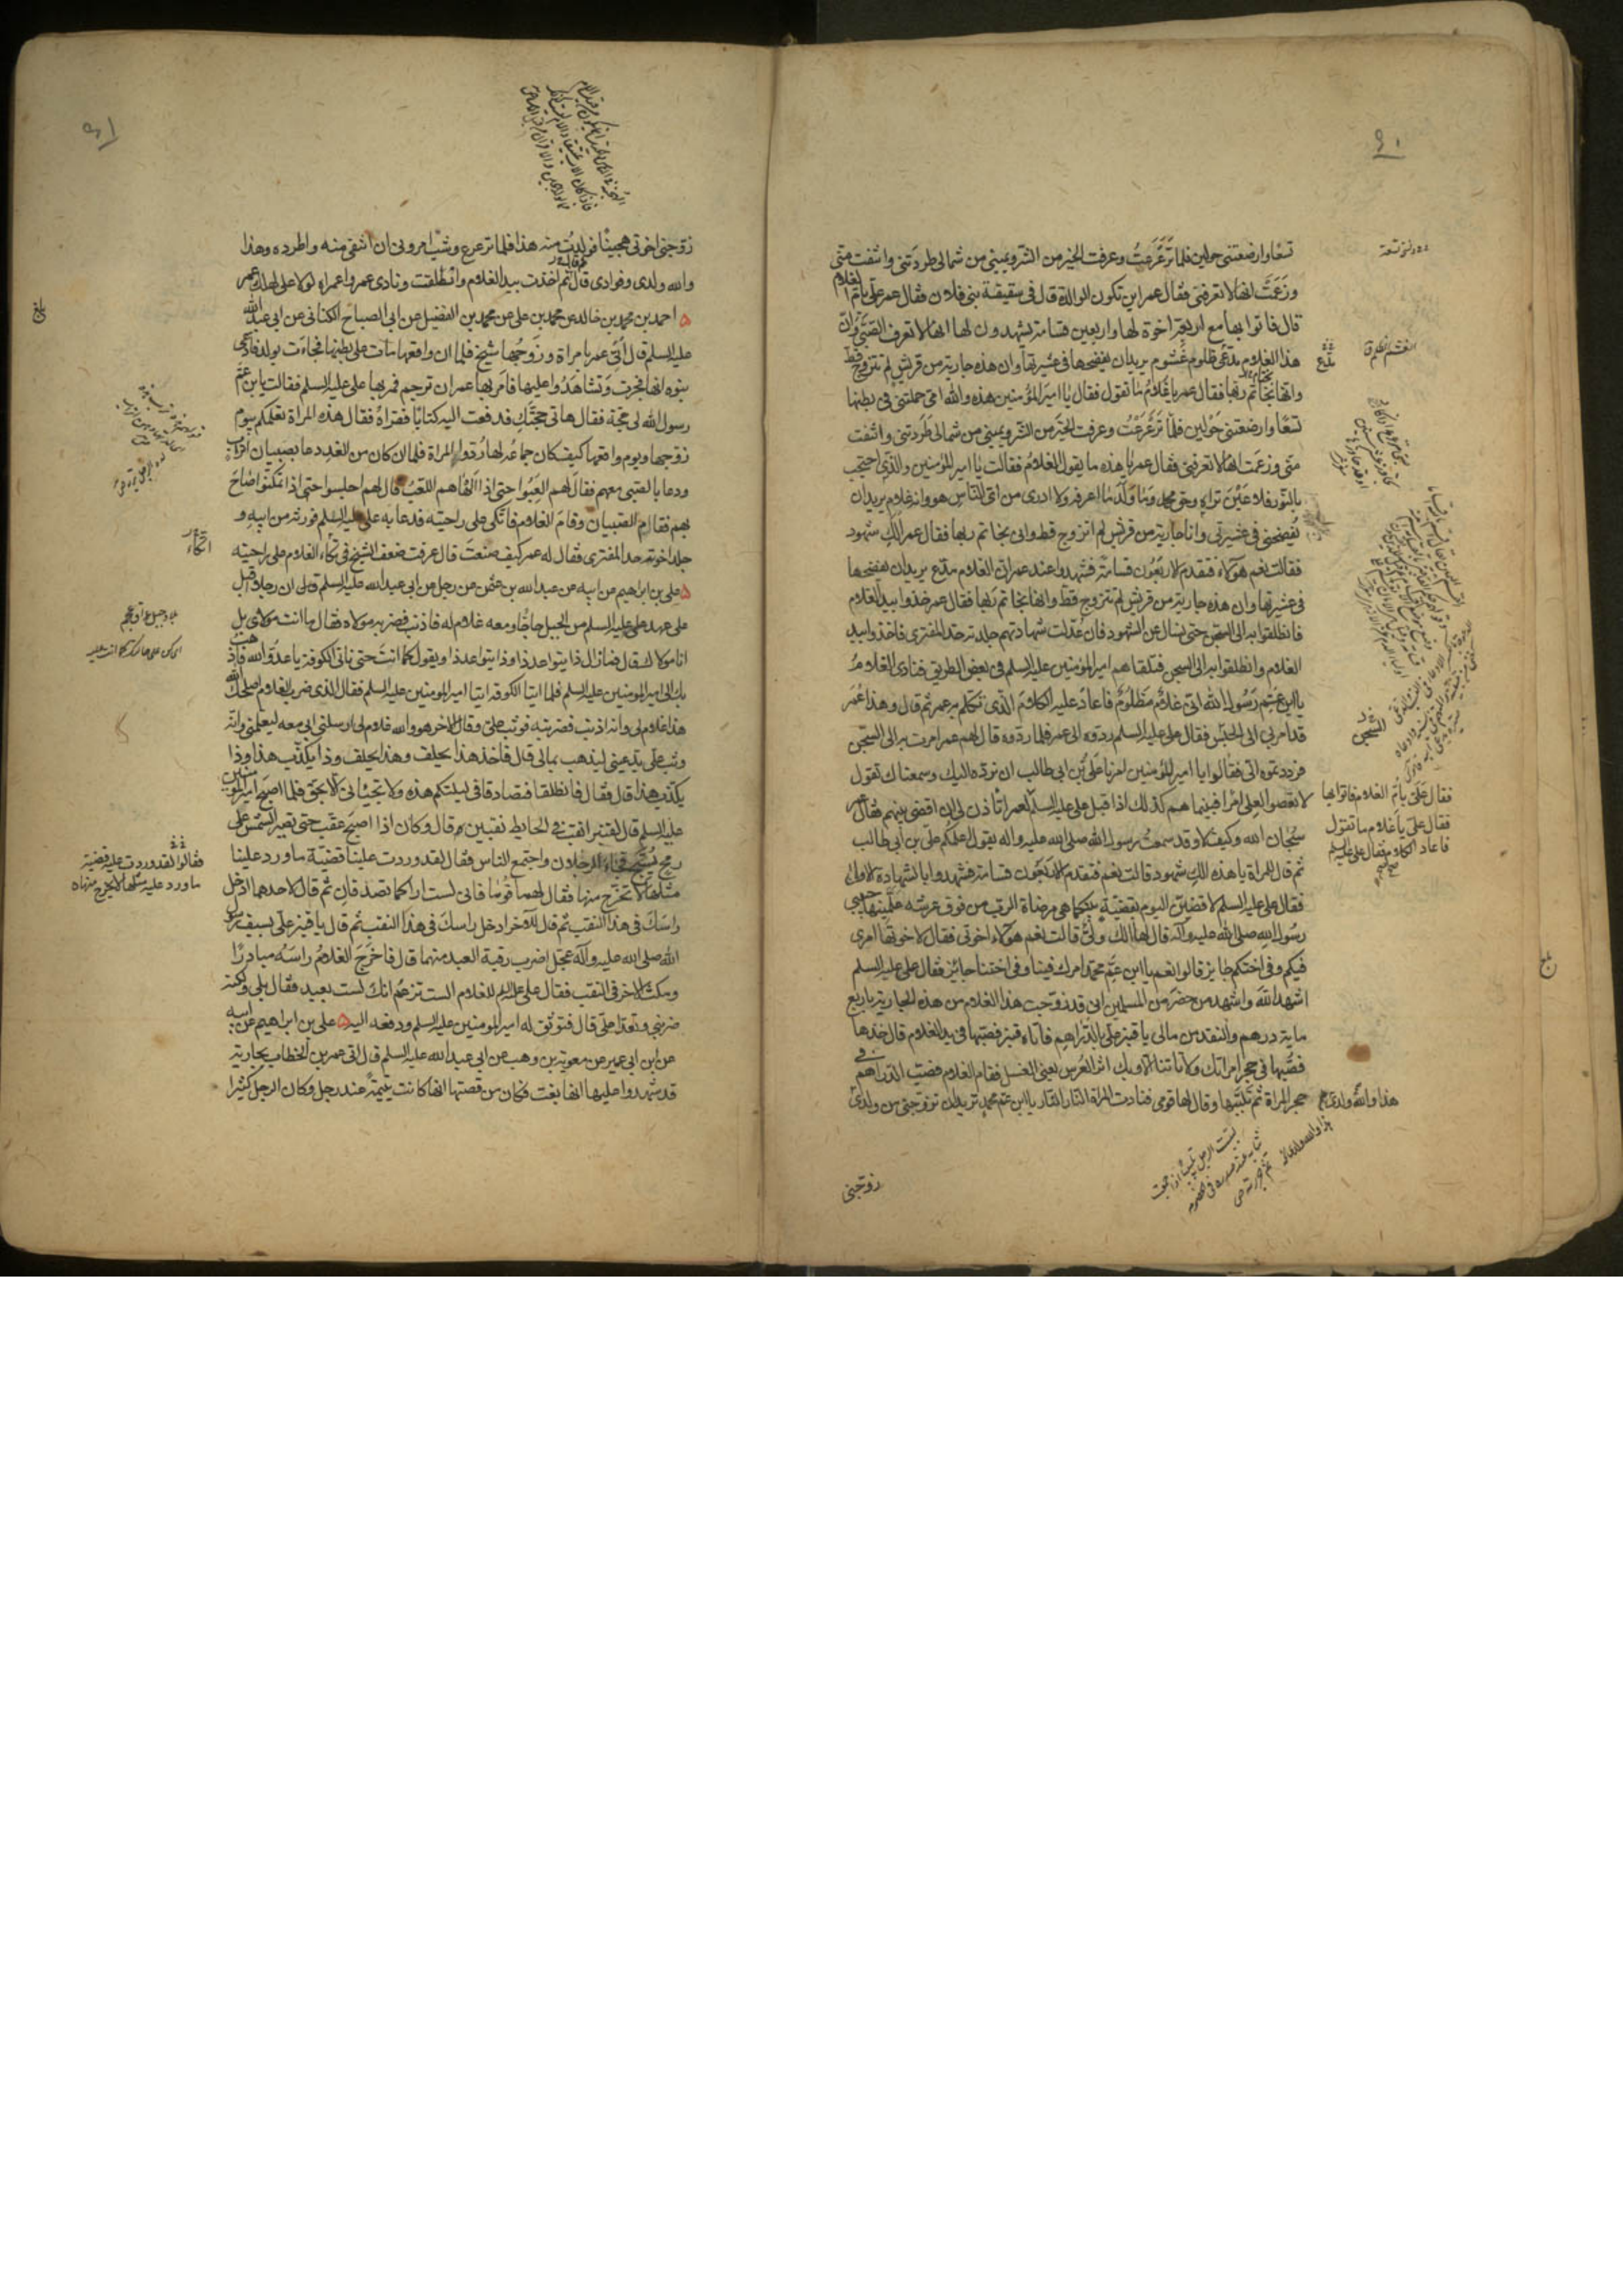 تسعا وارضعتنى حولين فلما ترعرعت وعرفت الخير من الشر ويمينى من شمالى طردتنى وانتفت منى
وزعمت انها لا تعرفنى فقال عمر اين تكون الوالدة قال فى سقيفة بنى فلان فقال عمر على بام الغلام
قال فاتوا بها مع اربعة اخوة لها واربعين قسامة يشهدون لها انها لا تعرف الصبى وان
هذا الغلام مدعى ظلوم غشوم يريد ان يفضحها فى عشيرتها وان هذه جارية من قريش لم تتزوج قط
وانها بخاتم ربها فقال عمر يا غلام ما تقول فقال يا امير المؤمنين هذه والله امى حملتنى فى بطنها
تسعا وارضعتنى حولين فلما ترعرعت وعرفت الخير من الشر ويمينى من شمالى طردتنى وانتفت
منى وزعمت انها لا تعرفنى فقال عمر يا هذه ما يقول الغلام فقالت يا امير المؤمنين والذى احتجب
بالنور فلا عين تراه وحق محمد وما ولد ما اعرفه ولا ادرى من اى الناس هو وانه غلام يريد ان
يفضحنى فى عشيرتى وانا جارية من قريش لم اتزوج قط وانى بخاتم ربها فقال عمر الك شهود
فقالت نعم هؤلاء فتقدم الاربعون قسامة فشهدوا عند عمر ان الغلام مدع يريد ان يفضحها
فى عشيرتها وان هذه جارية من قريش لم تتزوج قط وانها بخاتم ربها فقال عمر خذوا بيد الغلام
فانطلقوا به الى السجن حتى نسال عن الشهود فان عدلت شهادتهم جلدته حد المفترى فاخذوا بيد
الغلام وانطلقوا به الى السجن فتلقاهم امير المؤمنين عليه السلم فى بعض الطريق فنادى الغلام
يا ابن عم رسول الله انى غلام مظلوم فاعاد عليه الكلام الذى تكلم به عمر ثم قال وهذا عمر
قد امر بى الى الحبس فقال على عليه السلم ردوه الى عمر فلما ردوه قال لهم عمر امرت به الى السجن
فرددتموه الى فقالوا يا امير المؤمنين امرنا على بن ابى طالب ان نرده اليك وسمعناك تقول
لا تعصوا لعلى امرا فبينما هم كذلك اذا قبل على عليه السلم لعمر اتاذن لى ان اقضى بينهم فقال عمر
سبحان الله وكيف لا وقد سمعت رسول الله صلى الله عليه واله يقول اعلمكم على بن ابى طالب
ثم قال للمراة يا هذه الك شهود قالت نعم فتقدم الاربعون قسامة فشهدوا بالشهادة الاولى
فقال على عليه السلم لاقضين اليوم بقضية بينكما هى مرضاة الرب من فوق عرشه علمنيها حبيبى
رسول الله صلى الله عليه وآله قال لها الك ولى قالت نعم هؤلاء اخوتى فقال لاخوتها امرى
فيكم وفى اختكم جايز قالوا نعم يا ابن عم محمد امرك فينا وفى اختنا جائز فقال على عليه السلم
اشهد الله واشهد من حضر من المسلمين انى قد زوجت هذا الغلام من هذه الجارية باربع
ماية درهم والنقد من مالى يا قنبر على بالدراهم فاتاه قنبر فصبها فى يد الغلام قال خذها
فصبها فى حجر امراتك ولا تاتنا الا وبك اثر العرس يعنى الغسل فقام الغلام فصب الدراهم فى
حجر المراة ثم تلببها وقال لها قومى فنادت المراة النار النار يا ابن عم محمد تريد ان تزوجنى من ولدى
هذا والله ولدى
زوجنى
فقال على بام الغلام فاتوا بها
فقال على يا غلام ما تقول
فاعاد الكلام فقال على عليه السلم
زوجنى اخوتى هجينا فولدت منه هذا فلما ترعرع وشب امرونى ان انتفى منه واطرده وهذا
والله ولدى وفوادى قال ثم اخذت بيد الغلام وانطلقت ونادى عمر واعمراه لولا على لهلك عمر
احمد بن محمد بن خالد عن محمد بن على عن محمد بن الفضيل عن ابى الصباح الكنانى عن ابى عبد الله
عليه السلم قال اتى عمر بامراة وزوجها شيخ فلما ان واقعها مات على بطنها فجاءت بولد فادعى
بنوه انها فجرت وتشاهدوا عليها فامر بها عمر ان ترجم فمر بها على عليه السلم فقالت يا بن عم
رسول الله لى حجة فقال هاتى حجتك فدفعت اليه كتابا فقراه فقال هذه المراة تعلمكم بيوم
زوجها ويوم واقعها وكيف كان جماعه لها ردوا المراة فلما ان كان من الغد دعا بصبيان اتراب
ودعا بالصبى معهم فقال لهم العبوا حتى اذا الهاهم اللعب قال لهم اجلسوا حتى اذا تمكنوا صاح
بهم فقام الصبيان وقام الغلام فاتكى على راحتيه فدعا به على عليه السلم فورثه من ابيه و
جلد اخوته حد المفترى فقال له عمر كيف صنعت قال عرفت ضعف الشيخ فى تكاء الغلام على راحتيه
على بن ابراهيم عن ابيه عن عبد الله بن عثمن عن رجل عن ابى عبد الله عليه السلم قال ان رجلا اقبل
على عهد على عليه السلم من الجبل حاجا ومعه غلام له فاذنب فضربه مولاه فقال ما انت مولاى بل
انا مولاك قال فما زال ذا يتواعد ذا وذا يتواعد ذا ويقول كما انت حتى ناتى الكوفة يا عدو الله فاذهب
بك الى امير المومنين عليه السلم فلما اتيا الكوفة اتيا امير المومنين عليه السلم فقال الذى ضرب الغلام اصلحك الله
هذا غلام لى وانه اذنب فضربته فوثب على وقال الاخر هو والله غلام لى ارسلنى ابى معه ليعلمنى وانه
وثب على يدعينى ليذهب بمالى قال فاخذ هذا يحلف وهذا يحلف وذا يكذب هذا وذا
يكذب هذا قال فقال فانطلقا فتصادقا فى ليلتكم هذه ولا تجيئانى الا بحق فلما اصبح امير المومنين
عليه السلم قال لقنبر اثقب فى الحايط ثقبين قال وكان اذا اصبح عقب حتى تصير الشمس على
رمح يسبح فجاء الرجلان واجتمع الناس فقال لقد وردت علينا قضية ما ورد علينا
مثلها لا تخرج منها فقال لهما قوما فانى لست اراكما تصدقان ثم قال لاحدهما ادخل
راسك فى هذا الثقب ثم قال للآخر ادخل راسك فى هذا الثقب ثم قال يا قنبر على بسيف رسول
الله صلى الله عليه وآله عجل اضرب رقبة العبد منهما قال فاخرج الغلام راسه مبادرا
ومكث الاخر فى الثقب فقال على عليه السلم للغلام الست تزعم انك لست بعبد فقال بلى ولكنه
ضربنى وتعدى على قال فتوثق له امير المومنين عليه السلم ودفعه اليه على بن ابراهيم عن ابيه
عن ابن ابى عمير عن معوية بن وهب عن ابى عبد الله عليه السلم قال اتى عمر بن الخطاب بجارية
قد شهدوا عليها انها بغت وكان من قصتها انها كانت يتيمة عند رجل وكان الرجل كثيرا
فقالوا لقد وردت عليه قضية
ما ورد عليه مثلها لا يخرج منها